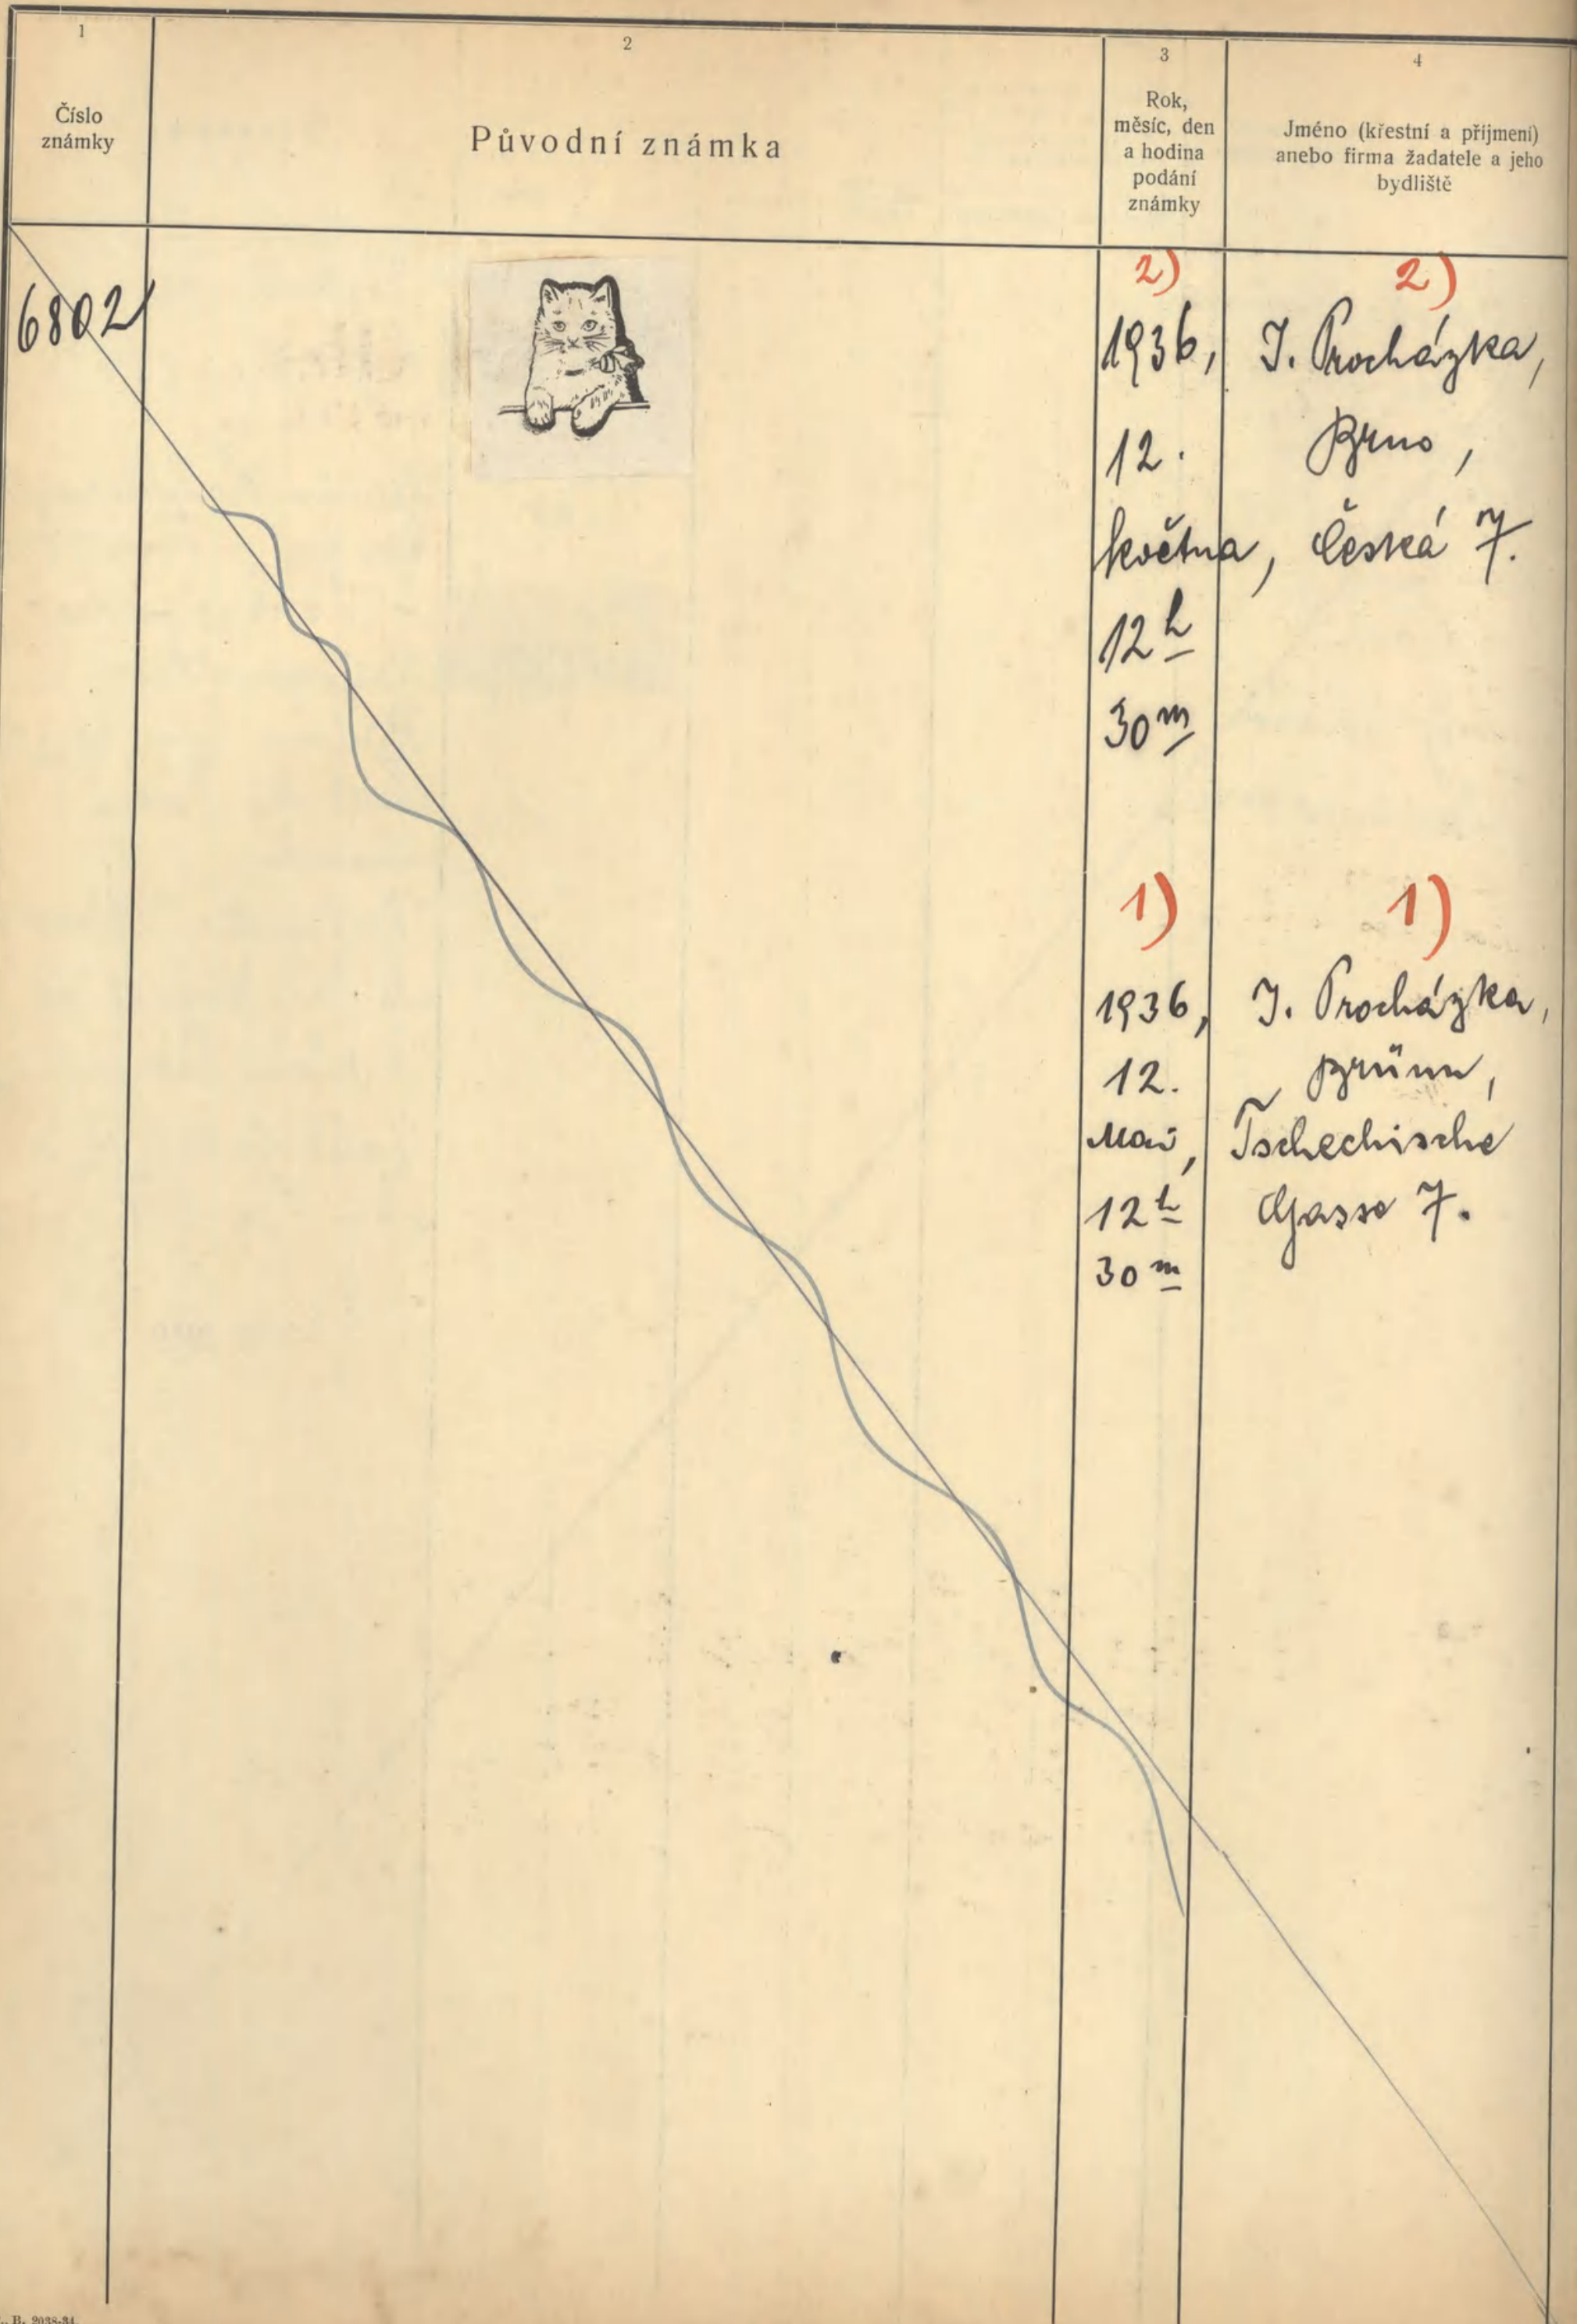 1
Číslo
známky
2
Původní známka
3
Rok,
měsíc, den
a hodina
podání
známky
4
Jméno (křestní a příjmení)
anebo firma žadatele a jeho
bydliště
6802
2)
1936,
12.
května,
12 h
30 m
2)
J. Procházka,
Brno,
Česká 7.
1)
1936,
12.
Mai,
12 h
30 m
1)
J. Procházka,
Brünn,
Tschechische
Gasse 7.
B. 2038-34.